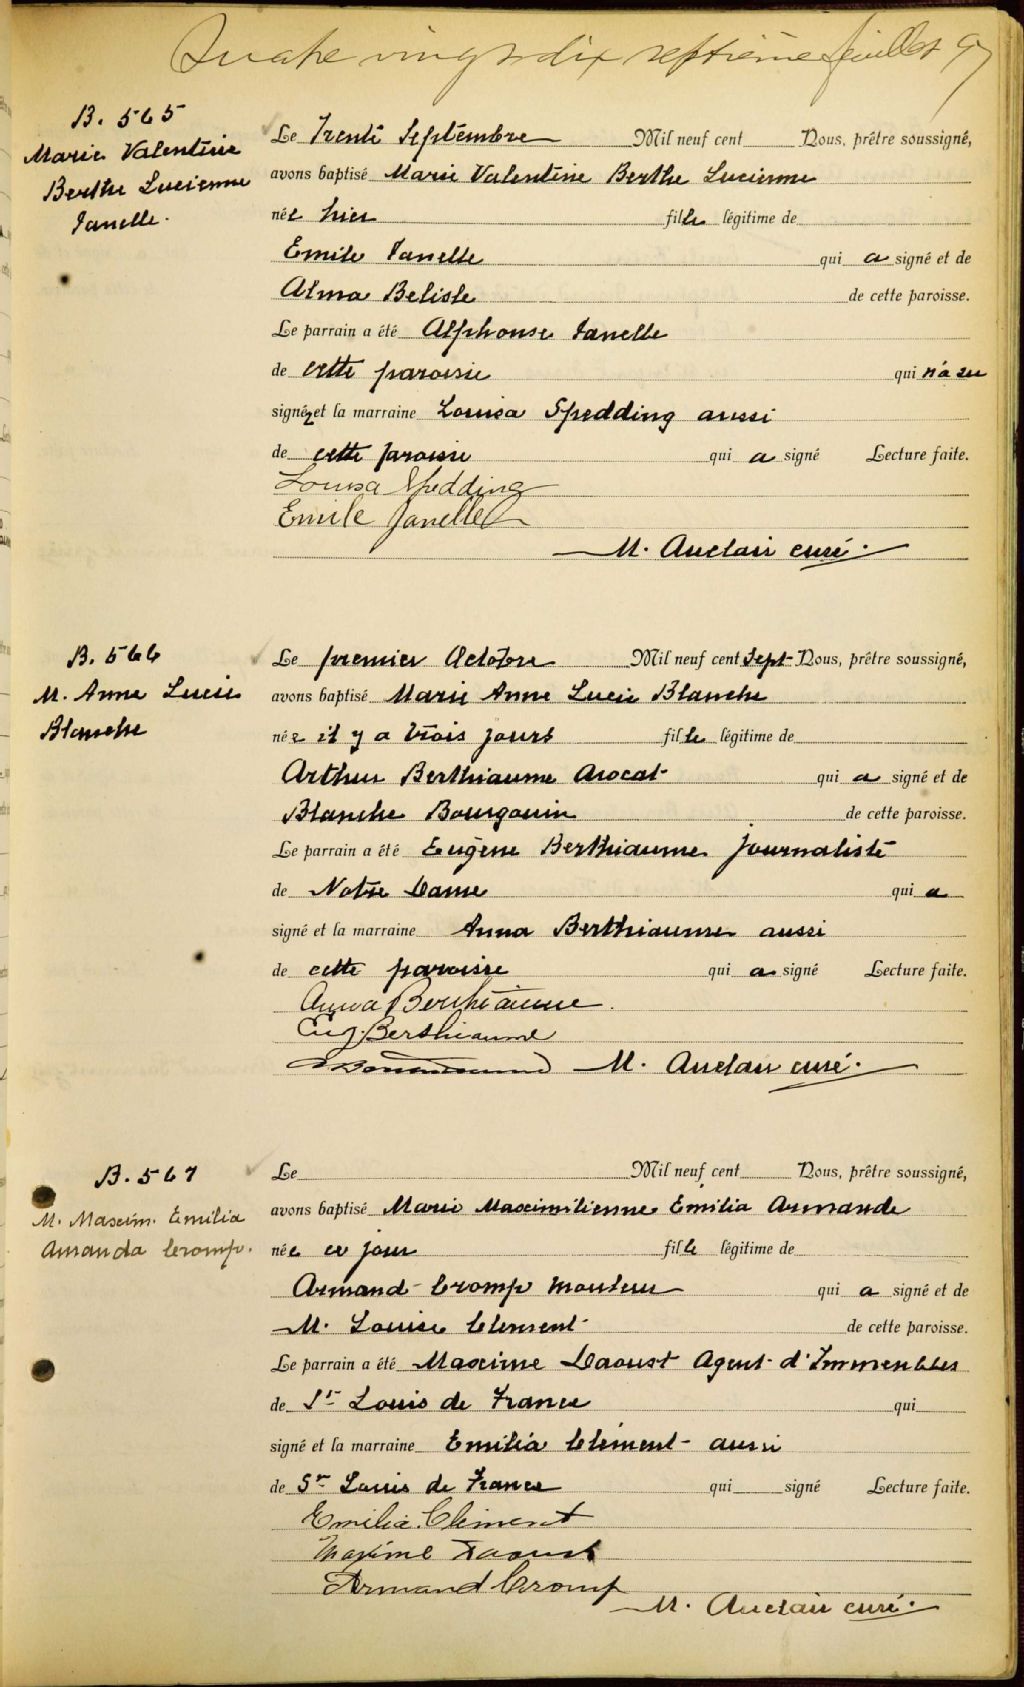 Quatre vingt dix septième feuillet 97
B. 565
Marie Valentine
Berthe Lucienne
Janelle.
Le Trente Septembre Mil neuf cent Nous, prêtre soussigné,
avons baptisé Marie Valentine Berthe Lucienne
née hier fille légitime de
Emile Janelle qui a signé et de
Alma Belisle de cette paroisse.
Le parrain a été Alphonse Janelle
de cette paroisse qui n'a su
signer et la marraine Louisa Spedding aussi
de cette paroisse qui a signé Lecture faite.
Louisa Spedding
Emile Janelle
M. Auclair curé.
B. 566
M. Anne Lucie
Blanche
Le premier Octobre Mil neuf cent Sept Nous, prêtre soussigné,
avons baptisé Marie Anne Lucie Blanche
née il y a trois jours fille légitime de
Arthur Berthiaume Avocat qui a signé et de
Blanche Bourgouin de cette paroisse.
Le parrain a été Eugène Berthiaume journaliste
de Notre Dame qui a
signé et la marraine Anna Berthiaume aussi
de cette paroisse qui a signé Lecture faite.
Anna Berthiaume.
Eug. Berthiaume
M. Auclair curé.
B. 567
M. Maxim. Emilia
Amanda Cromp.
Le Mil neuf cent Nous, prêtre soussigné,
avons baptisé Marie Maximilienne Emilia Armande
née ce jour fille légitime de
Armand Cromp Monteur qui a signé et de
M. Louise Clement de cette paroisse.
Le parrain a été Maxime Daoust Agent d'Immeubles
de St Louis de France qui
signé et la marraine Emilia Clément aussi
de St Louis de France qui signé Lecture faite.
Emilia Clément
Maxime Daoust
Armand Cromp
M. Auclair curé.